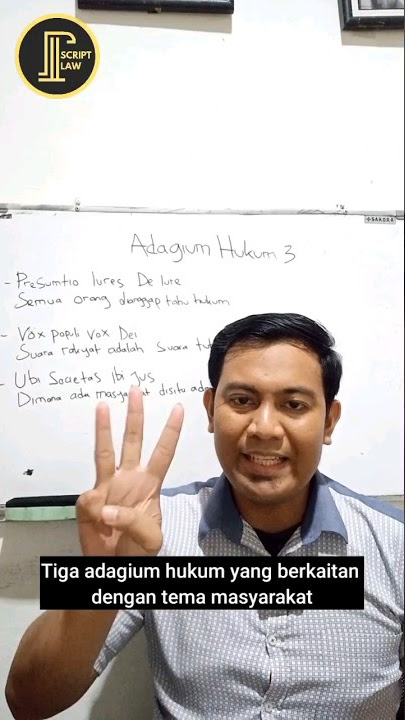 SCRIPT
LAW
SAKURA
Adagium Hukum 3
- Presumtio Iures De Iure
Semua orang dianggap tahu hukum
- Vox populi Vox Dei
Suara rakyat adalah Suara
- Ubi Societas Ibi Jus
Dimana ada masyarakat disitu
Tiga adagium hukum yang berkaitan
dengan tema masyarakat